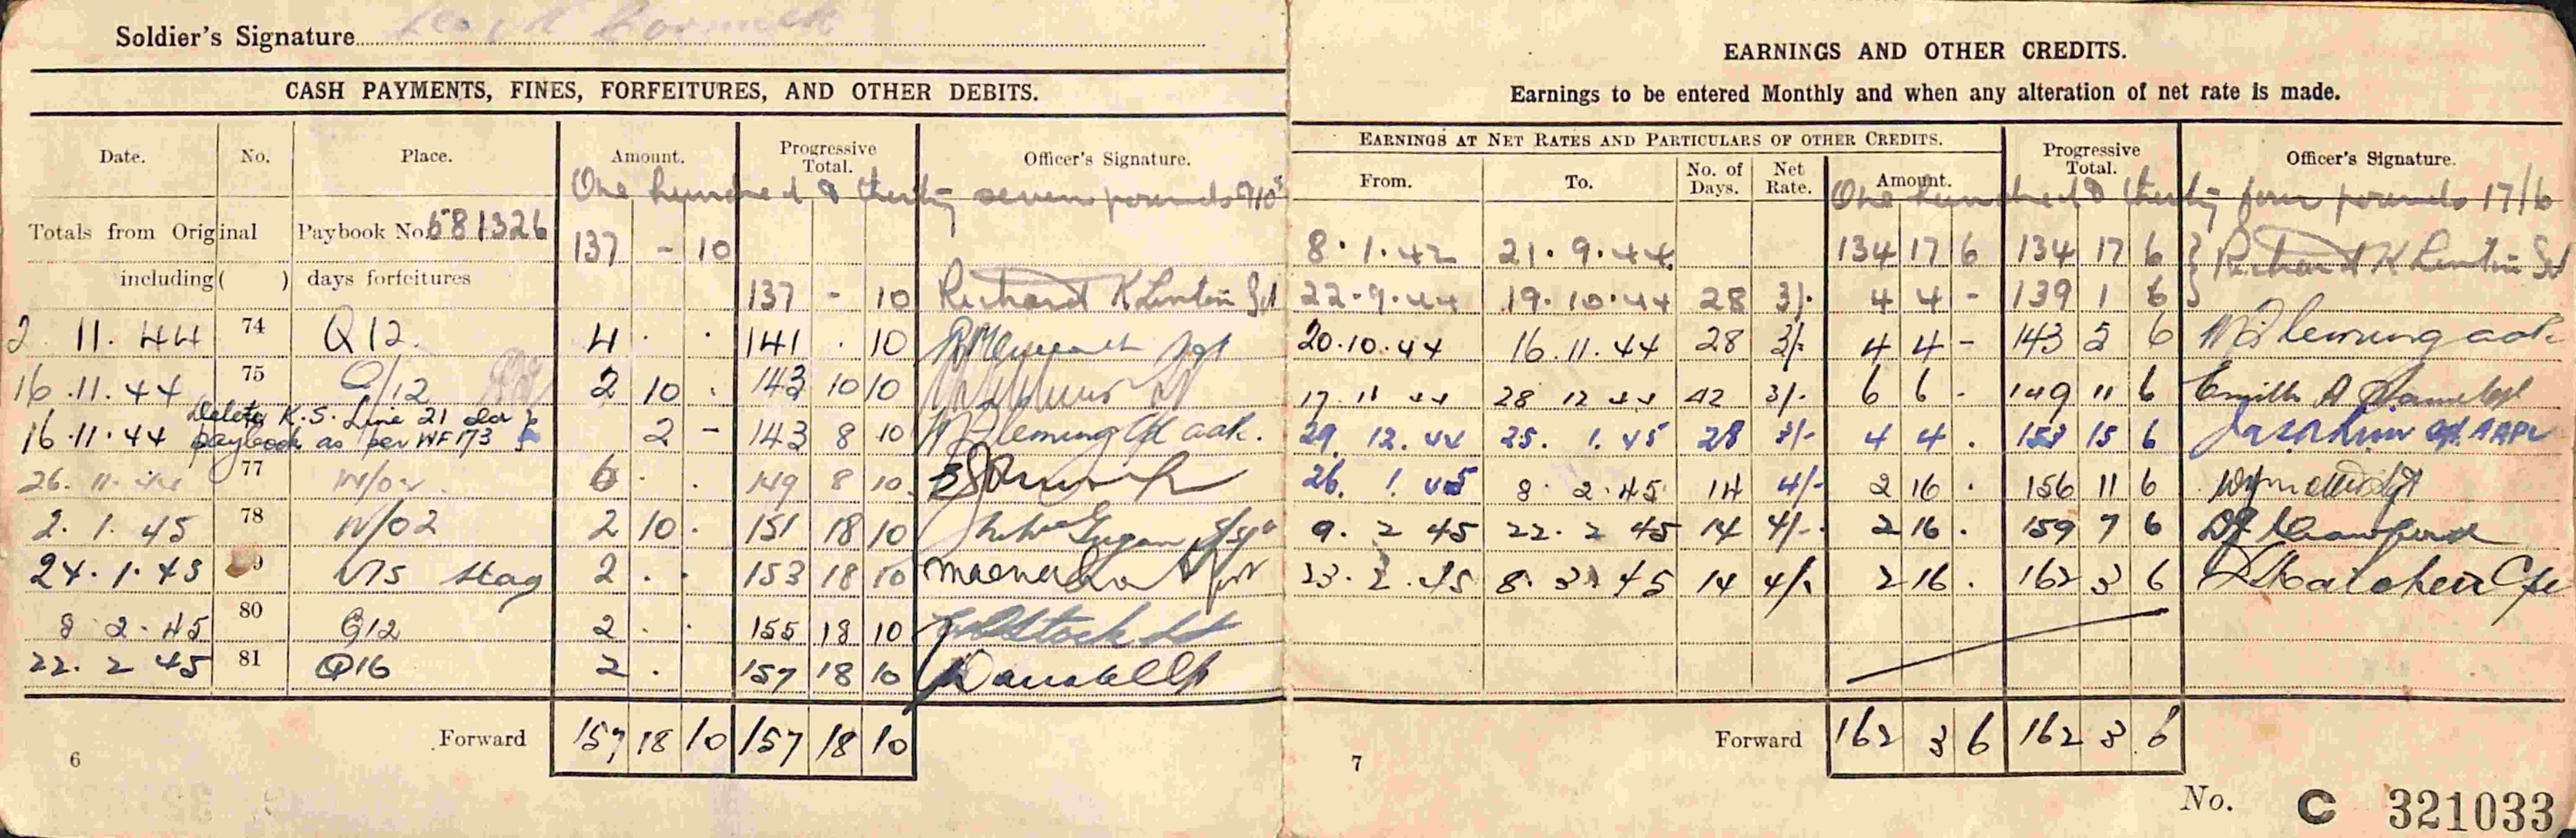 Soldier's Signature
CASH PAYMENTS, FINES, FORFEITURES, AND OTHER DEBITS.
Date. No. Place. Amount. Progressive Total. Officer's Signature.
One hundred & thirty seven pounds
Totals from Original Paybook No. 681326 137 - 10
including ( ) days forfeitures 137 - 10 Richard K Linton
2 11. 44 74 Q12. 4 . . 141 . 10 Sgt
16 .11. 44 75 Q/12 2 10 . 143 10 10
Delete K.S. Line 21
16.11.44 paybook as per WF173 2 - 143 8 10 Fleming
26. 11. 44 77 W/02. 6 . . 149 8 10
2. 1. 45 78 W/02 2 10 . 151 18 10
24. 1. 45 V75 Stag 2 . . 153 18 10
8 2. 45 80 Q12 2 . . 155 18 10
22. 2 45 81 Q16 2 . 157 18 10
Forward 157 18 10 157 18 10
6
EARNINGS AND OTHER CREDITS.
Earnings to be entered Monthly and when any alteration of net rate is made.
EARNINGS AT NET RATES AND PARTICULARS OF OTHER CREDITS. Progressive Total. Officer's Signature.
From. To. No. of Days. Net Rate. Amount.
One hundred & thirty four pounds 17/6
8. 1. 42 21. 9. 44 134 17 6 134 17 6 Richard K Linton
22-9-44 19. 10. 44 28 3/- 4 4 - 139 1 6
20.10.44 16.11.44 28 3/- 4 4 - 143 5 6 Fleming
17 11 44 28 12 44 42 3/- 6 6 - 149 11 6
29. 12. 44 25. 1. 45 28 3/- 4 4 . 153 15 6
26. 1. 45 8. 2. 45 14 4/- 2 16 . 156 11 6
9. 2 45 22. 2 45 14 4/- 2 16 . 159 7 6 Crawford
23. 2. 45 8. 3. 45 14 4/- 2 16 . 162 3 6
Forward 162 3 6 162 3 6
7
No. C 321033